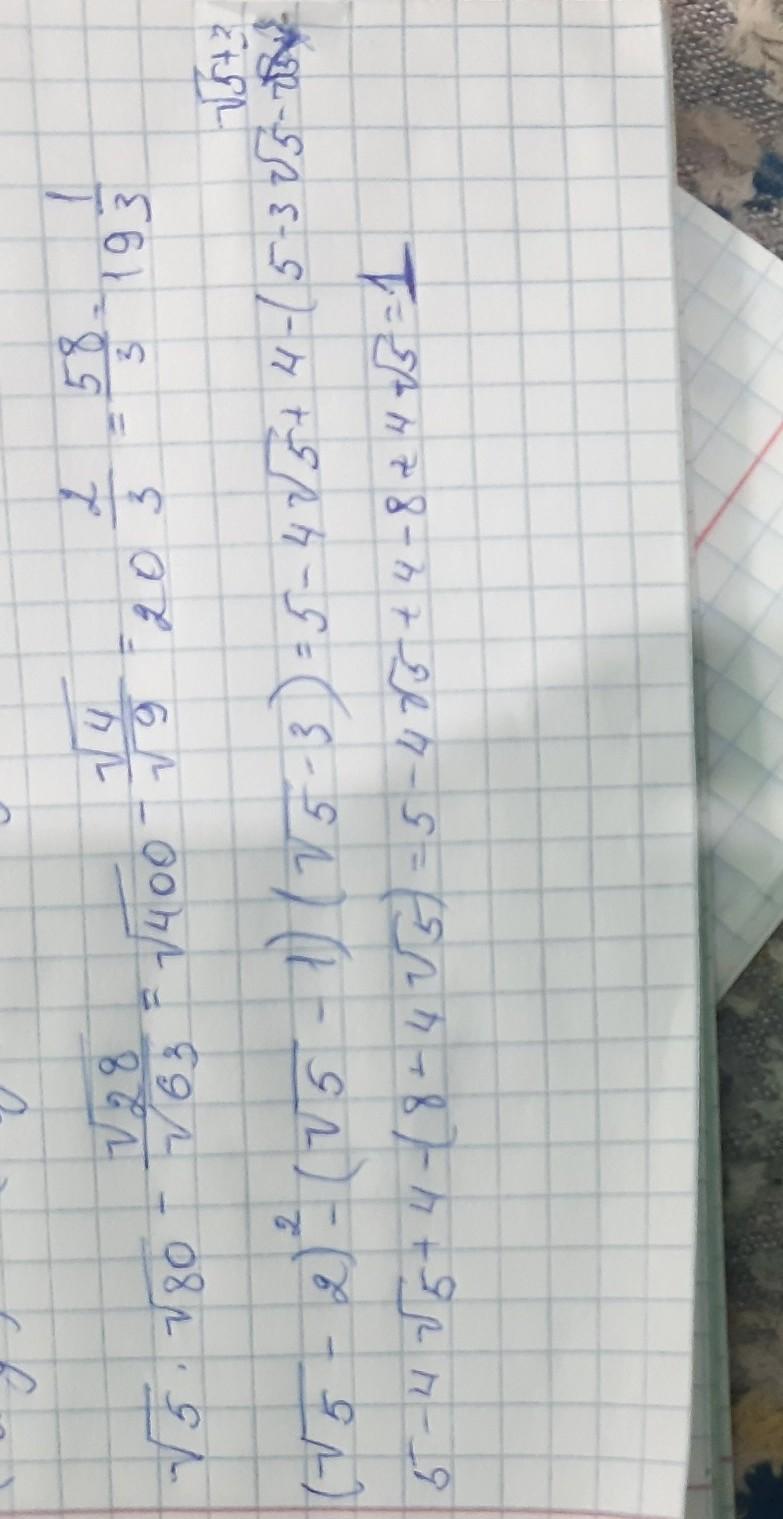 √5 · √80 - √28/√63 = √400 - √4/√9 = 20 2/3 = 58/3 = 19 1/3
(√5 - 2)² - (√5 - 1)(√5 - 3) = 5 - 4√5 + 4 - (5 - 3√5 - √5 + 3
5 - 4√5 + 4 - (8 + 4√5) = 5 - 4√5 + 4 - 8 + 4√5 = 1